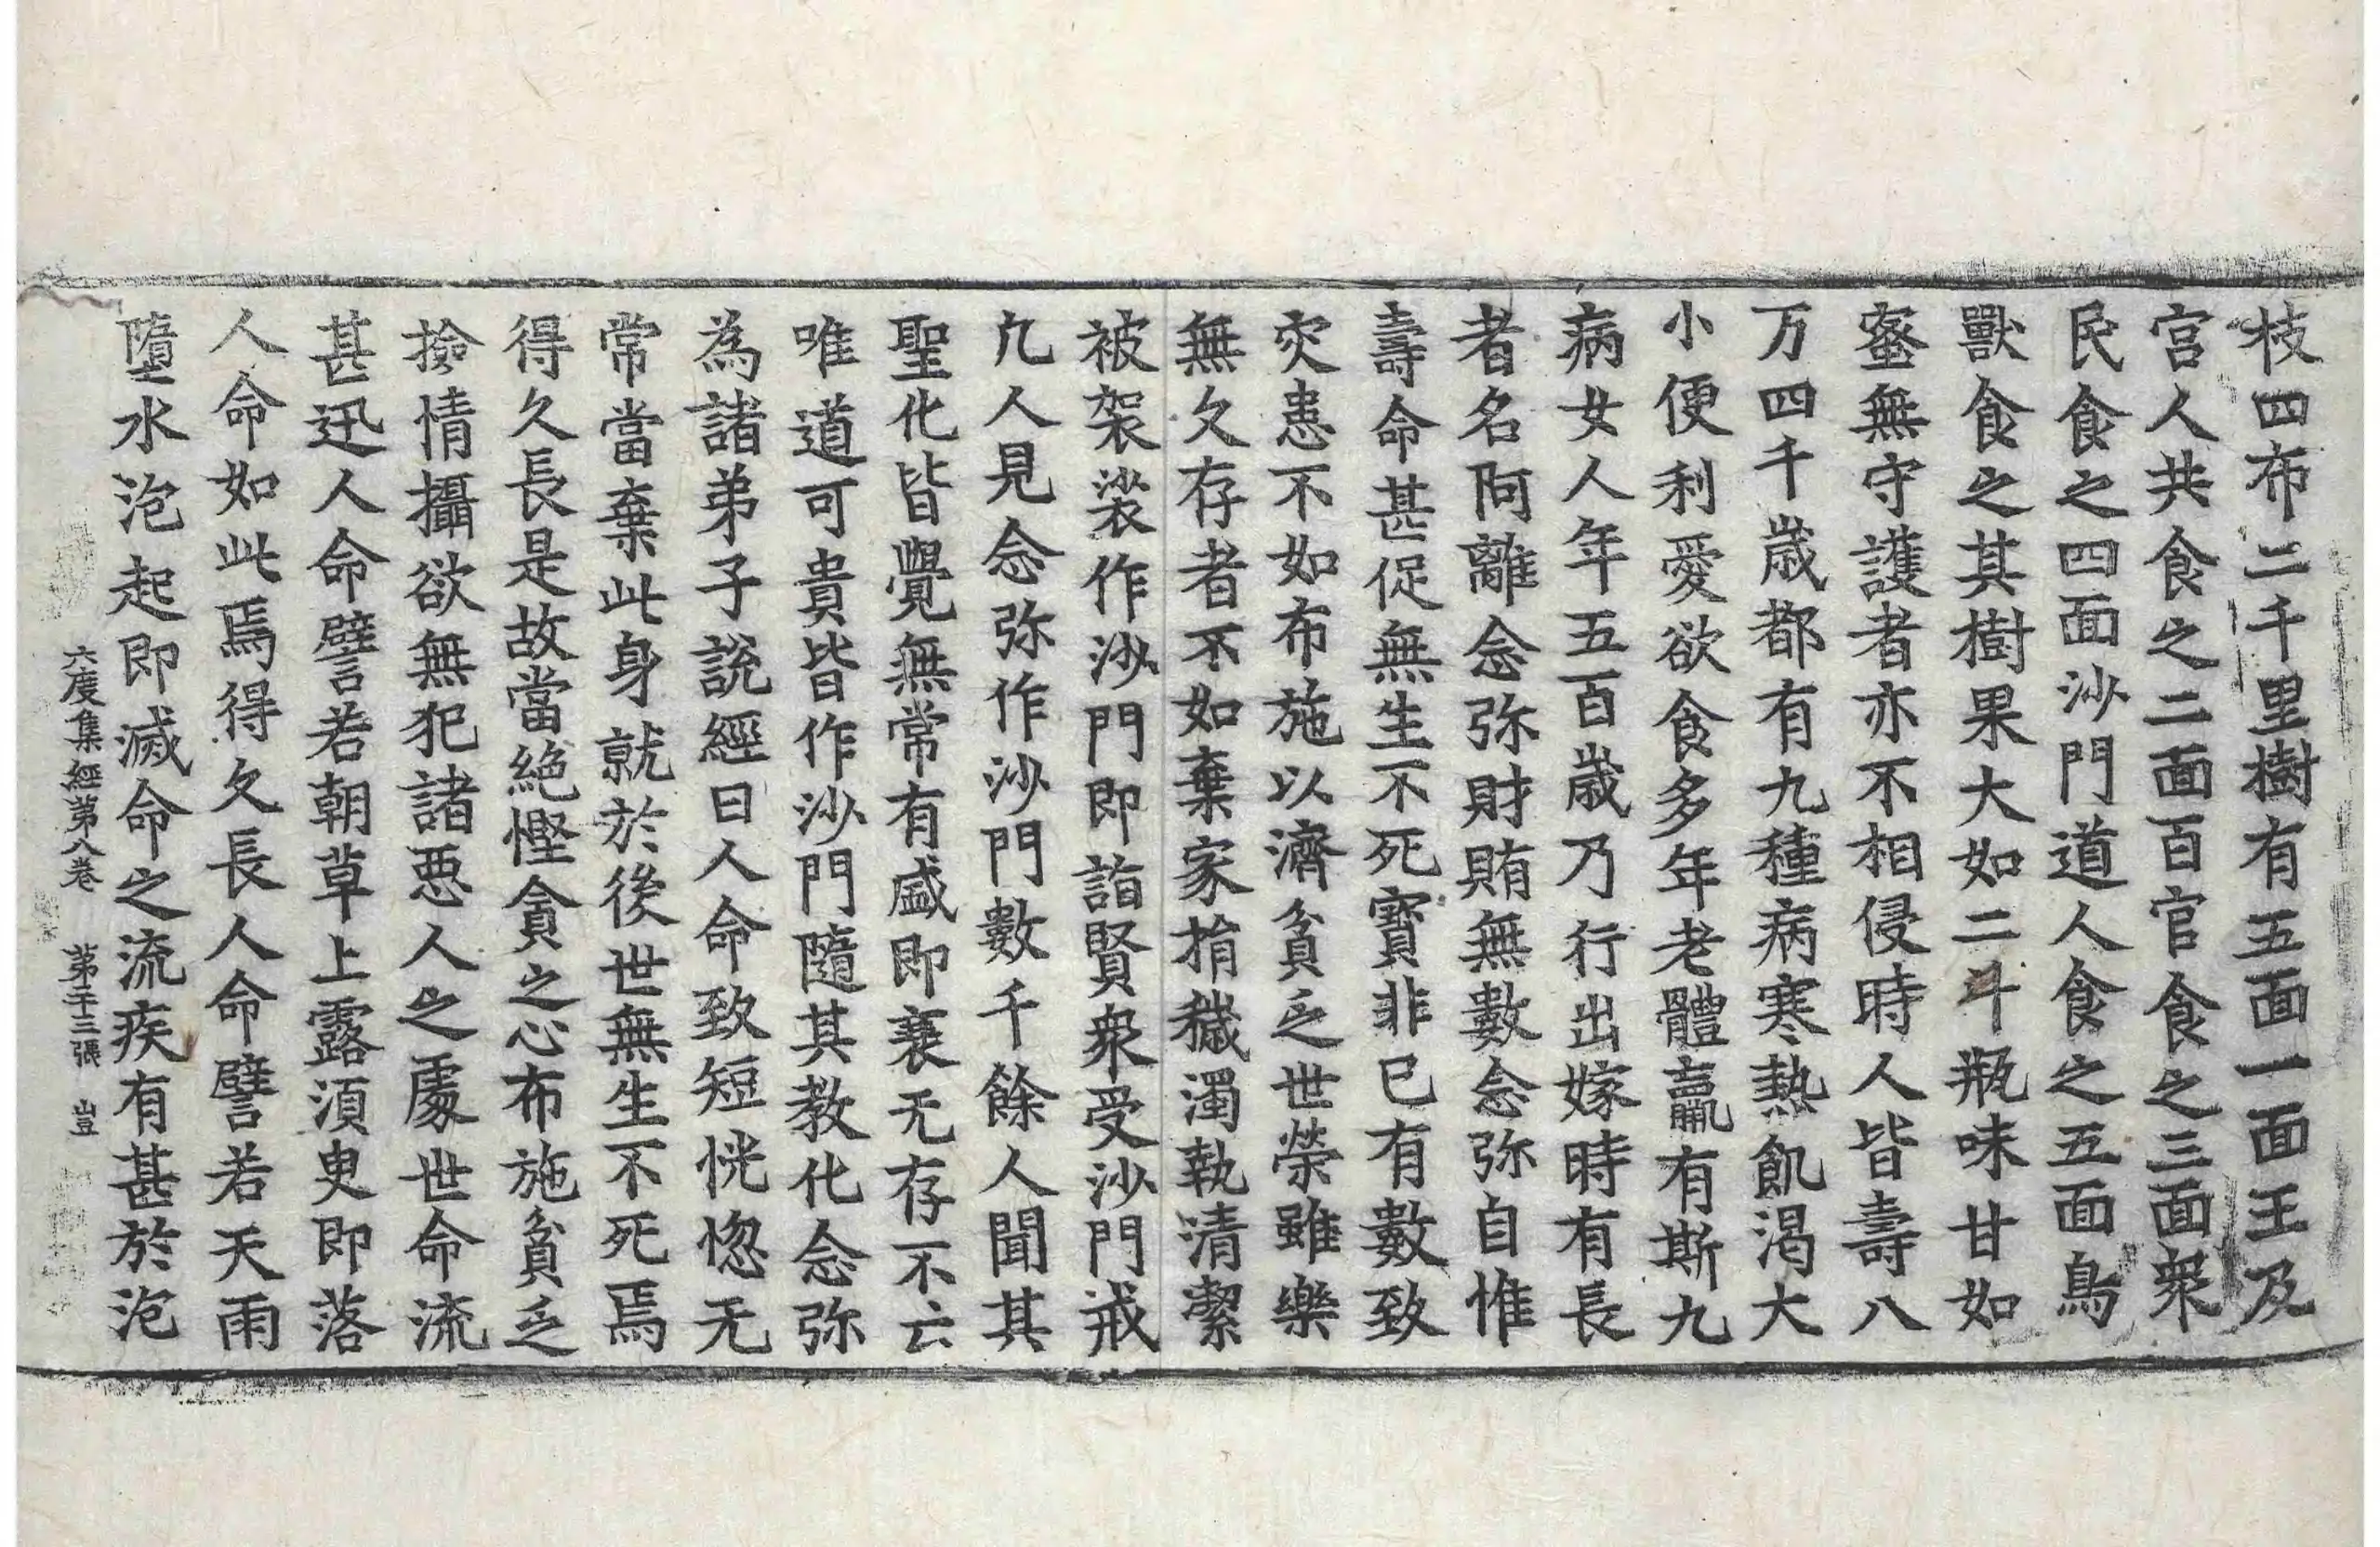 枝四布二千里樹有五面一面王及
宮人共食之二面百官食之三面衆
民食之四面沙門道人食之五面鳥
獸食之其樹果大如二斗瓶味甘如
蜜無守護者亦不相侵時人皆壽八
万四千歲都有九種病寒熱飢渴大
小便利愛欲食多年老體羸有斯九
病女人年五百歲乃行出嫁時有長
者名阿離念弥財賄無數念弥自惟
壽命甚促無生不死寶非已有數致
灾患不如布施以濟貧乏世榮雖樂
無久存者不如棄家捐穢濁執清潔
被袈裟作沙門即詣賢衆受沙門戒
凢人見念弥作沙門數千餘人聞其
聖化皆覺無常有盛即衰无存不亡
唯道可貴皆作沙門隨其教化念弥
為諸弟子說經曰人命致短恍惚无
常當棄此身就於後世無生不死焉
得久長是故當絕慳貪之心布施貧乏
撿情攝欲無犯諸惡人之處世命流
甚迅人命譬若朝草上露湏臾即落
人命如此焉得久長人命譬若天雨
墮水泡起即滅命之流疾有甚於泡
六度集經第八卷 第二十三張 豈